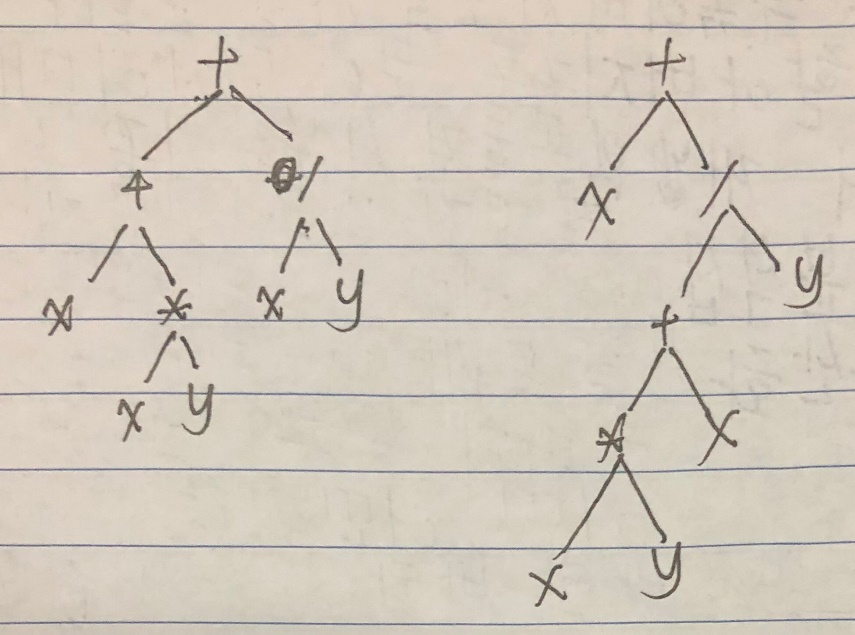 + +
+ /
x /
x * x y y
+
x y * x
x y